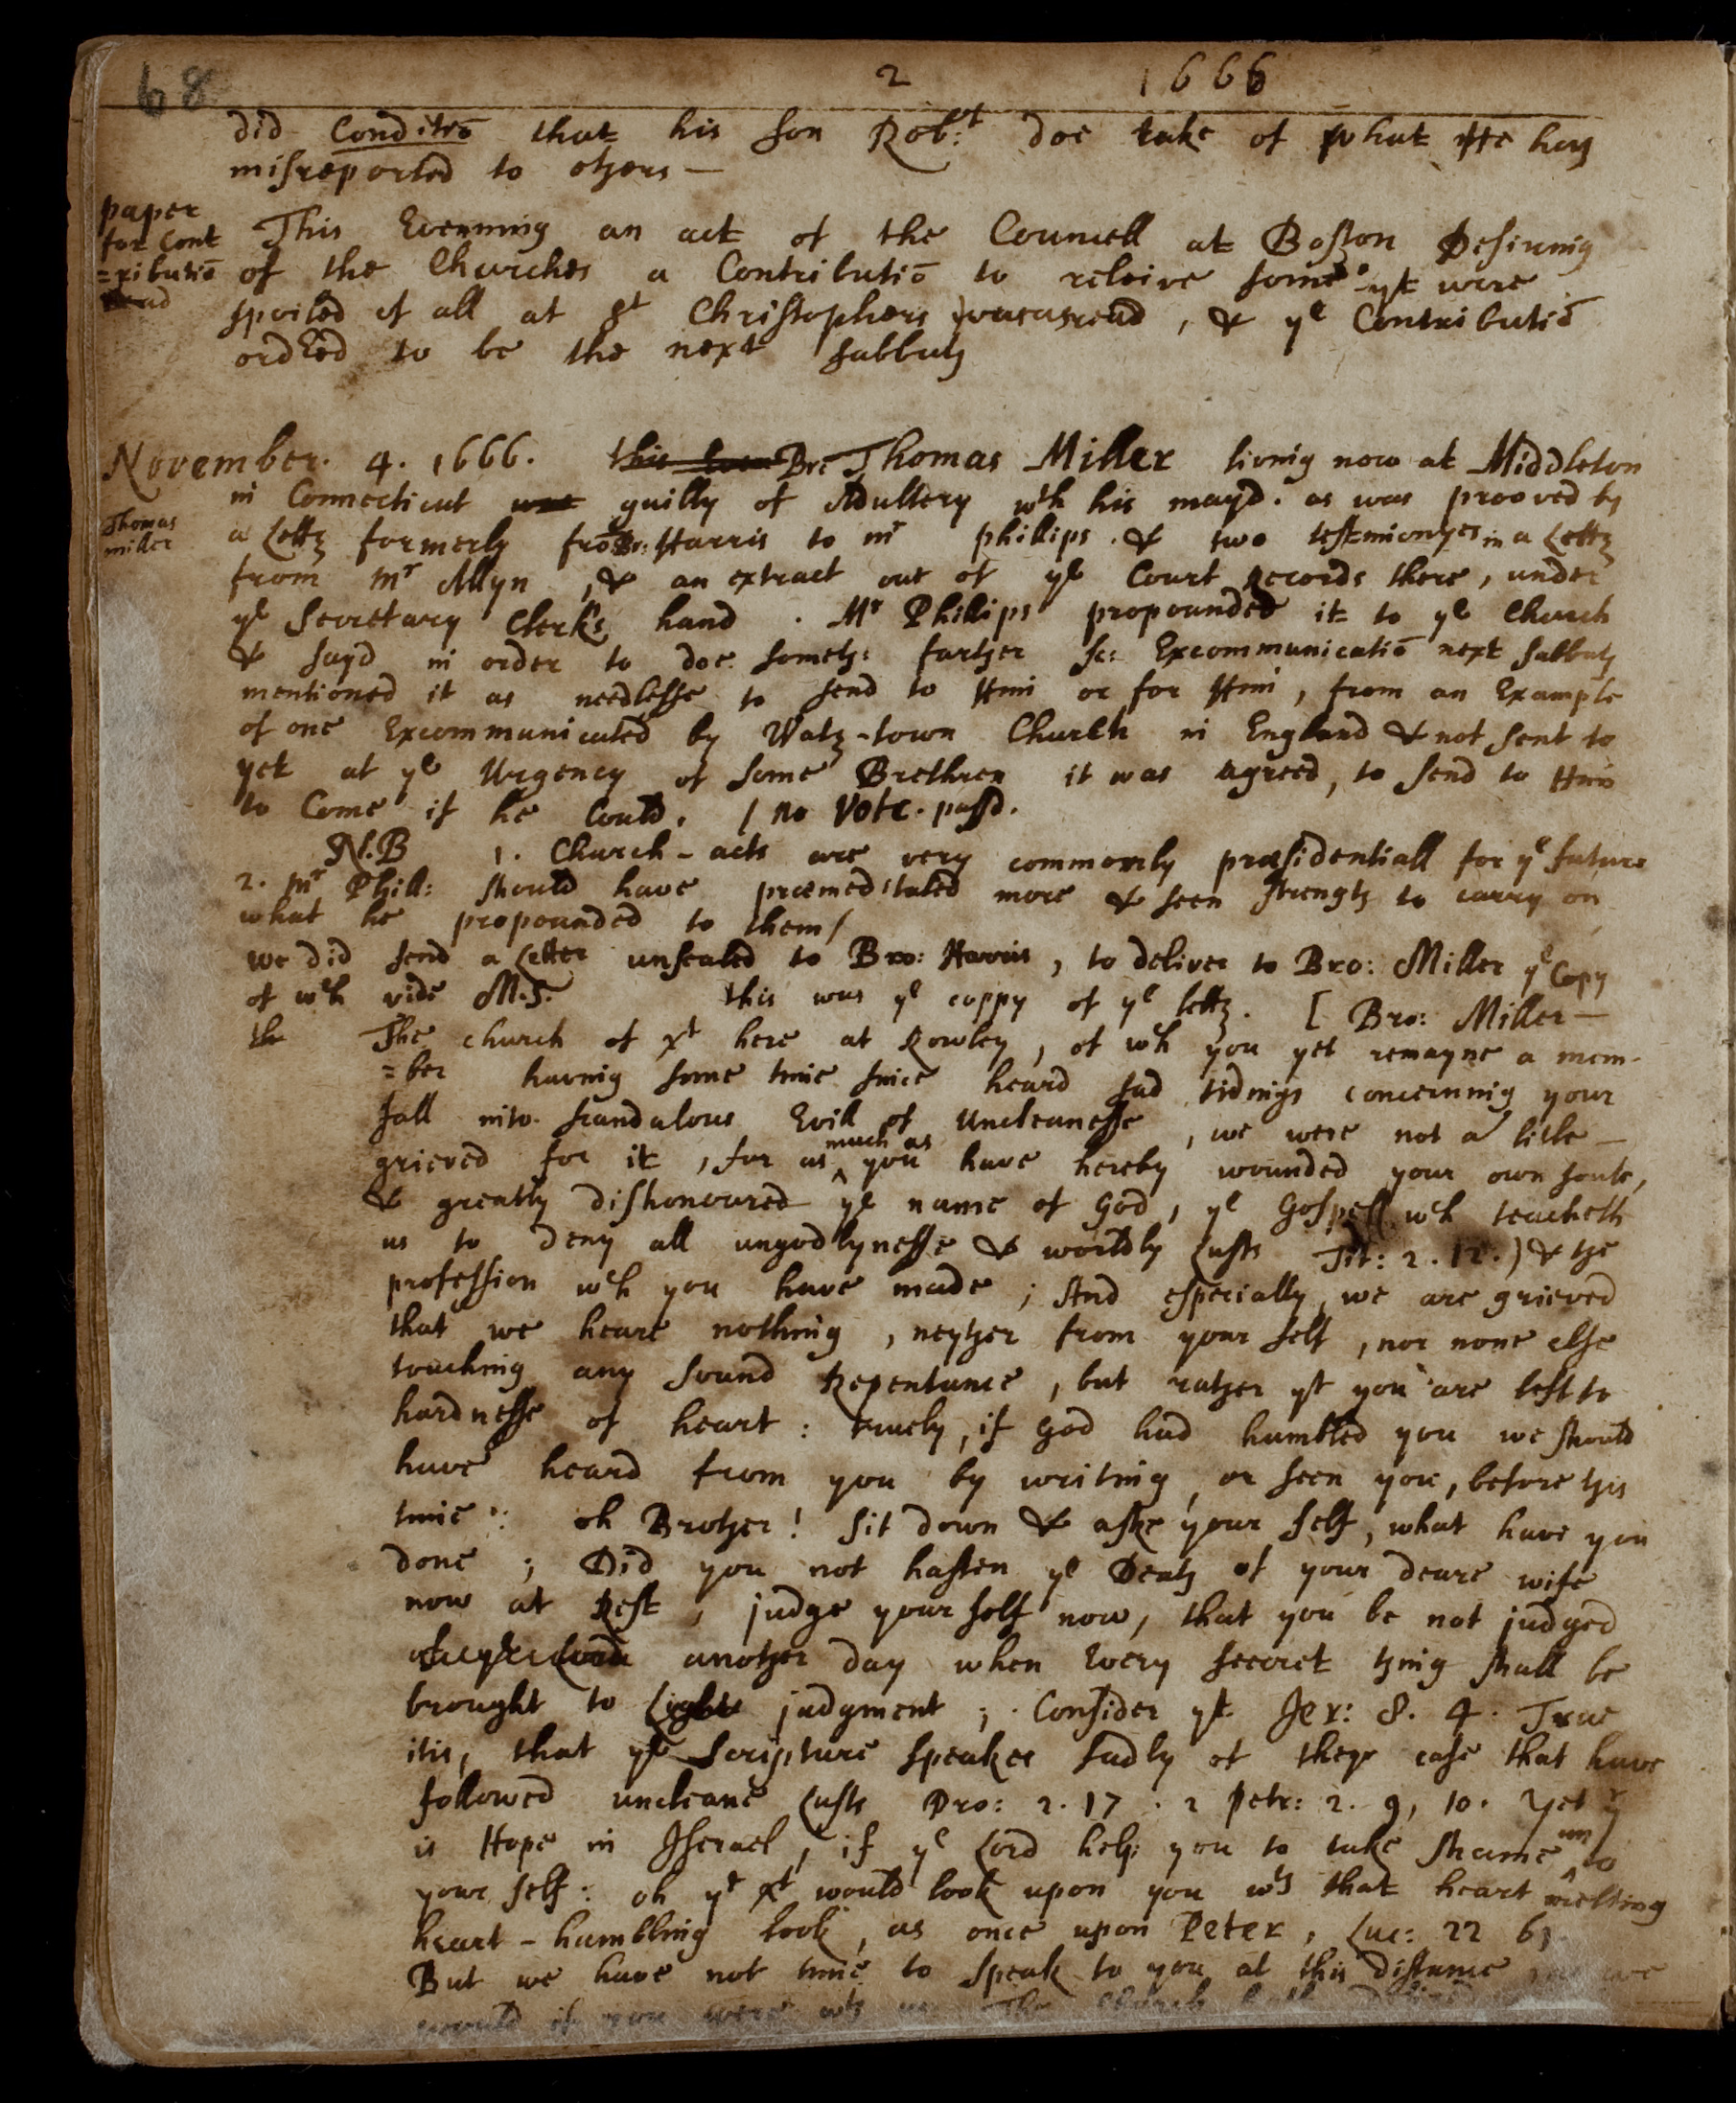 68 2 1666
did Conditiō that his son Rob:t doe take of what He has
misreported to others —
paper
for Cont
=ributiō
read
This Evenning an act of the Councell at Boston Desiring
of the Churches a Contributiō to releive some yt were
spoiled of all at St Christophers was read, & ye Contributiō
ordred to be the next sabbath
November. 4. 1666. this Even Bro Thomas Miller living now at Middleton
Thomas
miller
in Connecticut was guilty of Adultery wch his mayd. as was prooved by
a Letter formerly from Br: Harris to mr phillips. & two testimonyes in a Letter
from mr Allyn, & an extract out of ye Court Records there, under
ye Secretary Clerks hand. Mr Phillips propounded it to ye Church
& sayd in order to doe someth: farther sc: Excommunicatiō next sabbath
mentioned it as needlesse to send to Him or for Him, from an Example
of one Excommunicated by Water-town Church in England & not sent to
yet at ye Urgency of some Brethren it was agreed, to send to Him
to Come if he Could. / no Vote. passd.
N.B 1. Church-acts are very commonly præsidentiall for ye future
2. mr Phill: should have præmeditated more & seen strength to carry on
what he propounded to them /
we did send a Letter unsealed to Bro: Harris, to deliver to Bro: Miller ye Copy
of wch vide M.S. this was ye coppy of ye letter. [ Bro: Miller —
the The church of xt here at Rowley, of wch you yet remayne a mem-
=ber having some time since heard sad tidings concerning your
fall into scandalous Evill of Uncleanesse, we were not a litle —
grieved for it, for as much as you have hereby wounded your own soule,
& greatly dishonoured ye name of God, ye Gospell wch teacheth
us to deny all ungodlynesse & worldly Lusts Tit: 2. 12.) & the
profession wch you have made; And especially we are grieved
that we heare nothing, neyther from your self, nor none else
touching any sound Repentance, but rather yt you are left to
hardnesse of heart: truely, if God had humbled you we should
have heard from you by writing, or seen you, before this
time: oh Brother! sit down & aske your self, what have you
done; Did you not hasten ye Death of your deare wife
now at Rest, judge your self now, that you be not judged
of ye Lord another day when Every secret thing shall be
brought to Light judgment; Consider yt Jer: 8. 4. True
itis, that ye Scripture speakes sadly of theyr case that have
followed uncleane Lusts Pro: 2. 17. 2 Petr: 2. 9, 10. Yet yr
is Hope in Jsrael, if ye Lord help you to take shame unto
your self: oh yt xt would look upon you wth that heart melting
heart-humbling look, as once upon Peter, Luc: 22 61
But we have not time to speak to you at this distance as we
would if you were wth us. The Church hath